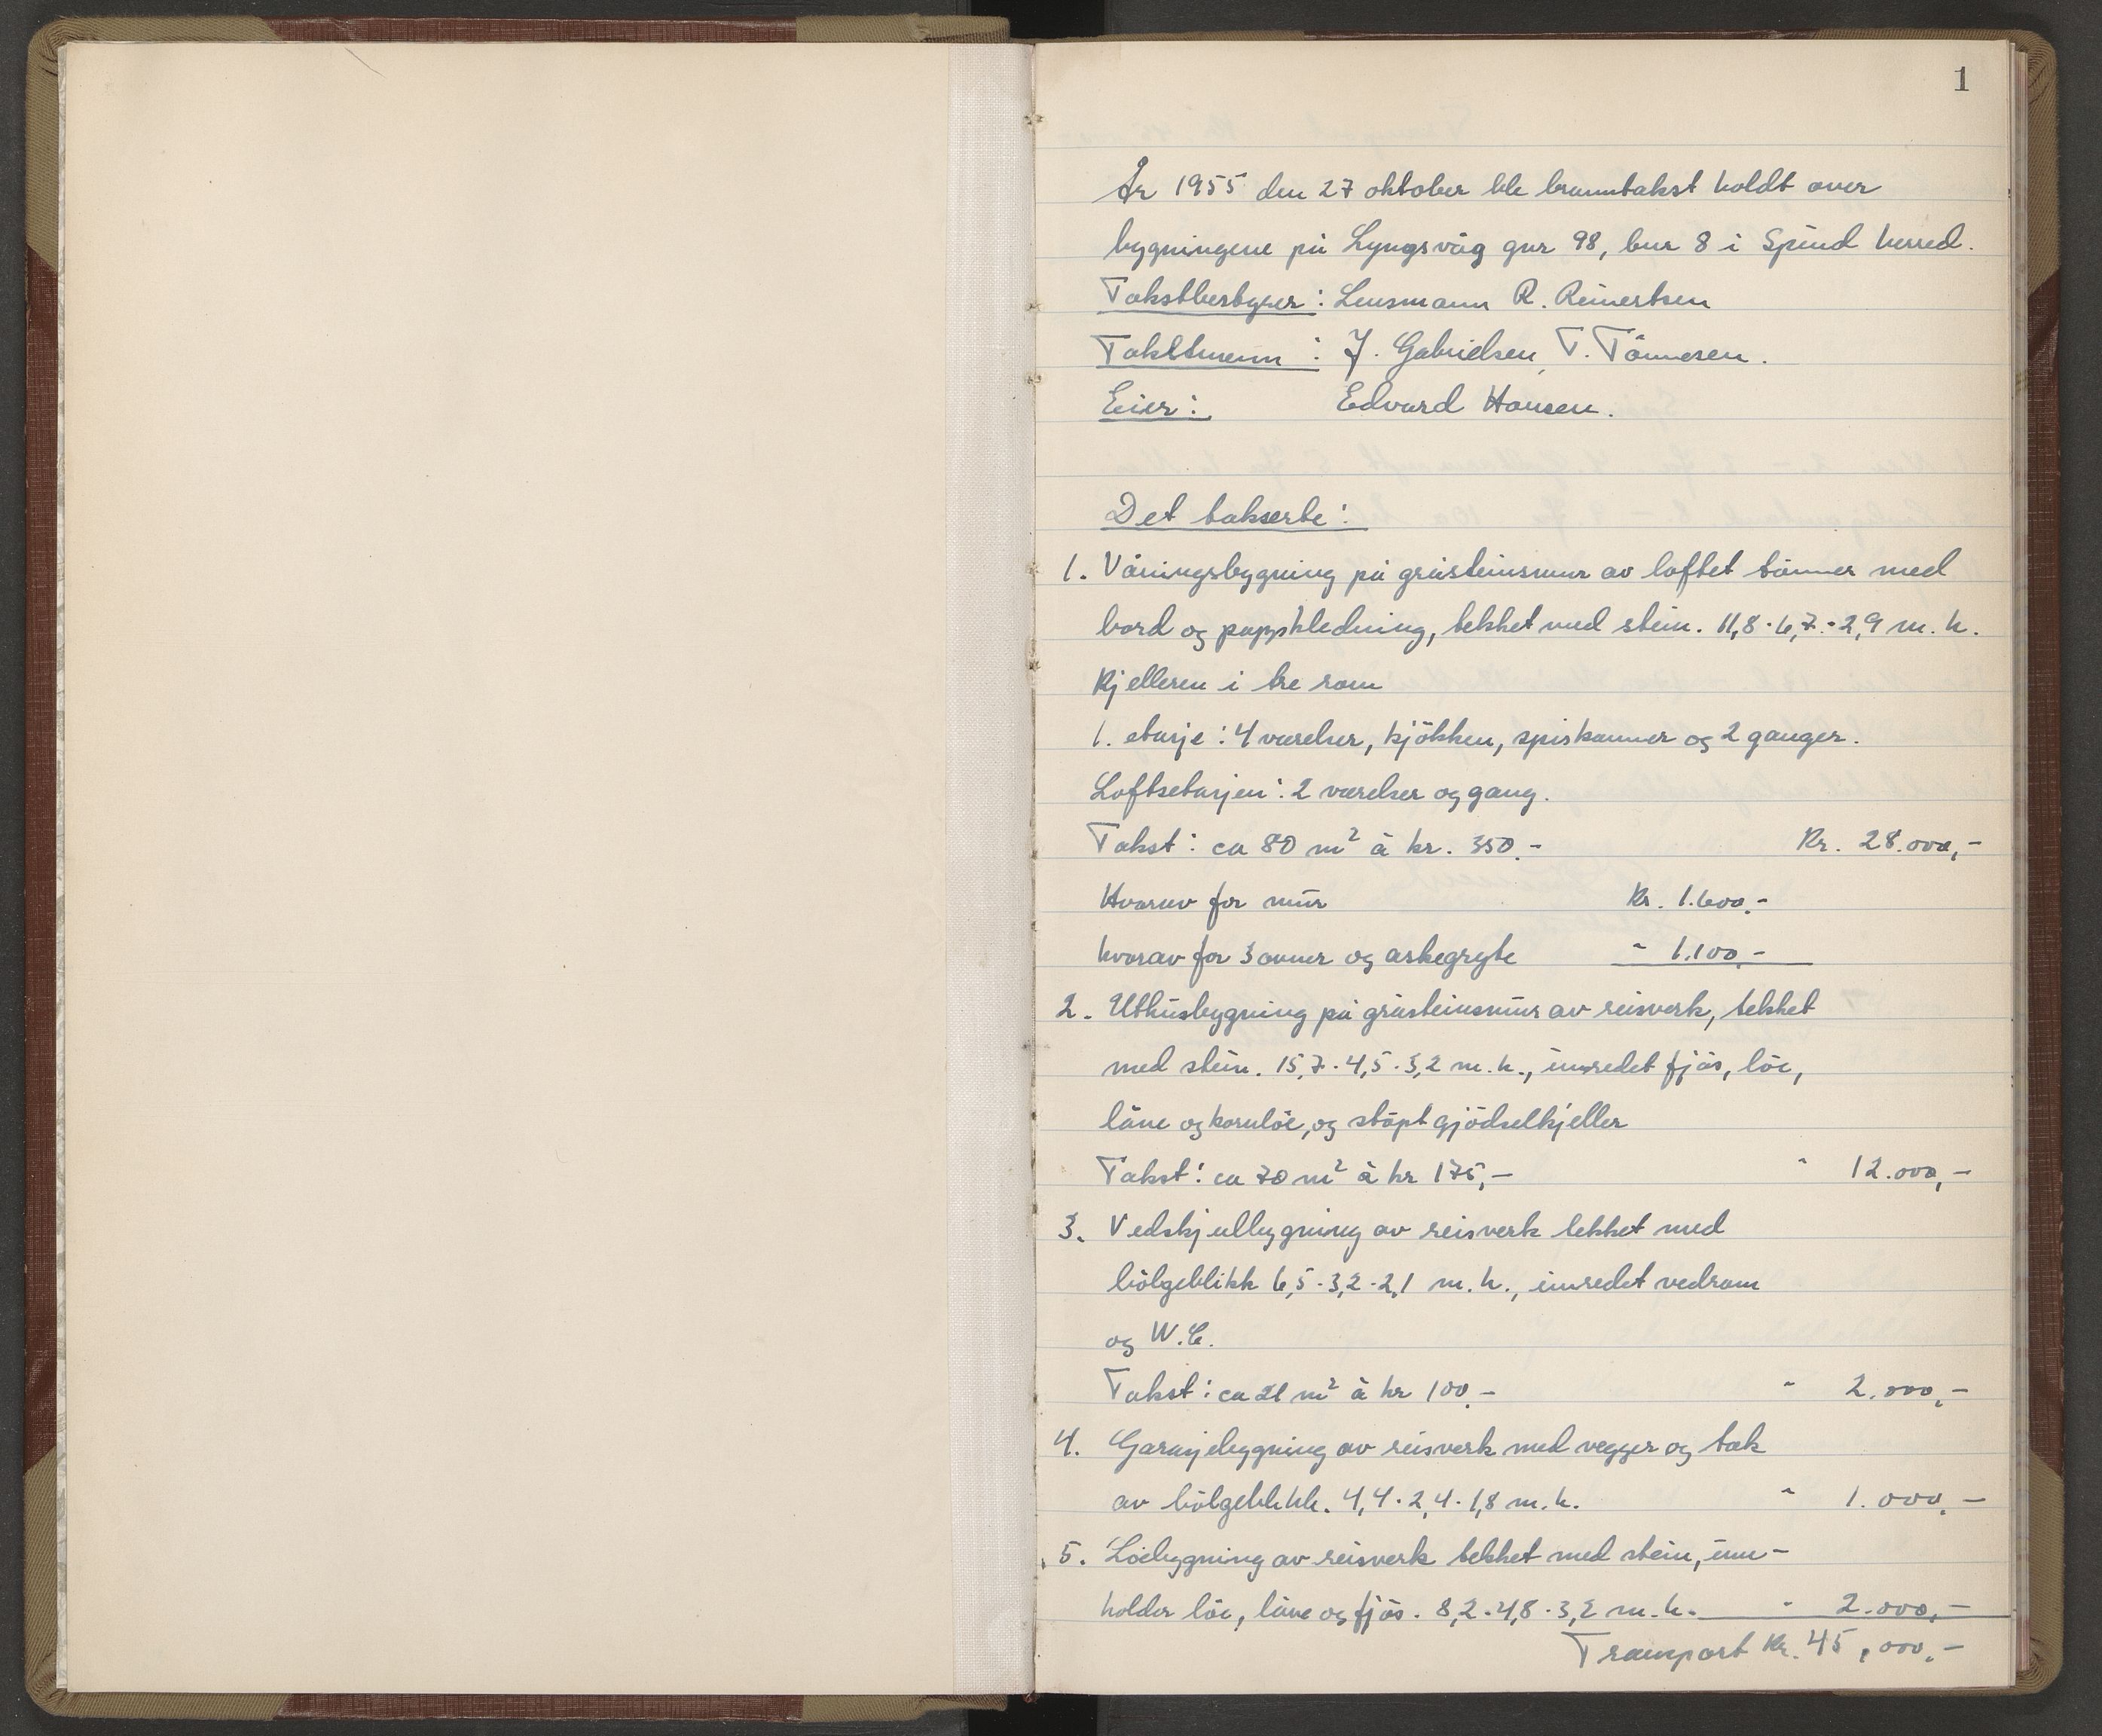 1
År 1955 den 27 oktober ble branntakst holdt over
bygningene på Lyngsvåg gnr 98, bnr 8 i Spind herred.
Takstbestyrer: Lensmann R. Reinertsen
Takstmenn: J. Gabrielsen, T. Tönnesen.
Eier: Edvard Hansen.
Det takserte:
1. Våningsbygning på gråsteinsmur av loftet tömmer med
bord og pappkledning, tekket med stein. 11,8·6,7·2,9 m. h.
Kjelleren i tre rom
1. etasje: 4 værelser, kjökken, spiskammer og 2 ganger.
Loftsetasjen: 2 værelser og gang.
Takst: ca 80 m² à kr. 350,- Kr. 28.000,-
Hvorav for mur Kr. 1.600,-
hvorav for 3 ovner og askegryte " 1.100,-
2. Uthusbygning på gråsteinsmur av reisverk, tekket
med stein. 15,7·4,5·3,2 m. h., innredet fjös, löe,
låve og kornlöe, og stöpt gjödselkjeller
Takst: ca 70 m² à kr 175,- " 12.000,-
3. Vedskjulbygning av reisverk tekket med
bölgeblikk 6,5·3,2·2,1 m. h., innredet vedrom
og W.C.
Takst: ca 21 m² à kr 100,- " 2.000,-
4. Garasjebygning av reisverk med vegger og tak
av bölgeblikk. 4,4·2,4·1,8 m. h. " 1.000,-
5. Löebygning av reisverk tekket med stein, inne-
holder löe, låve og fjös. 8,2·4,8·3,2 m. h. " 2.000,-
Transport Kr. 45,000,-